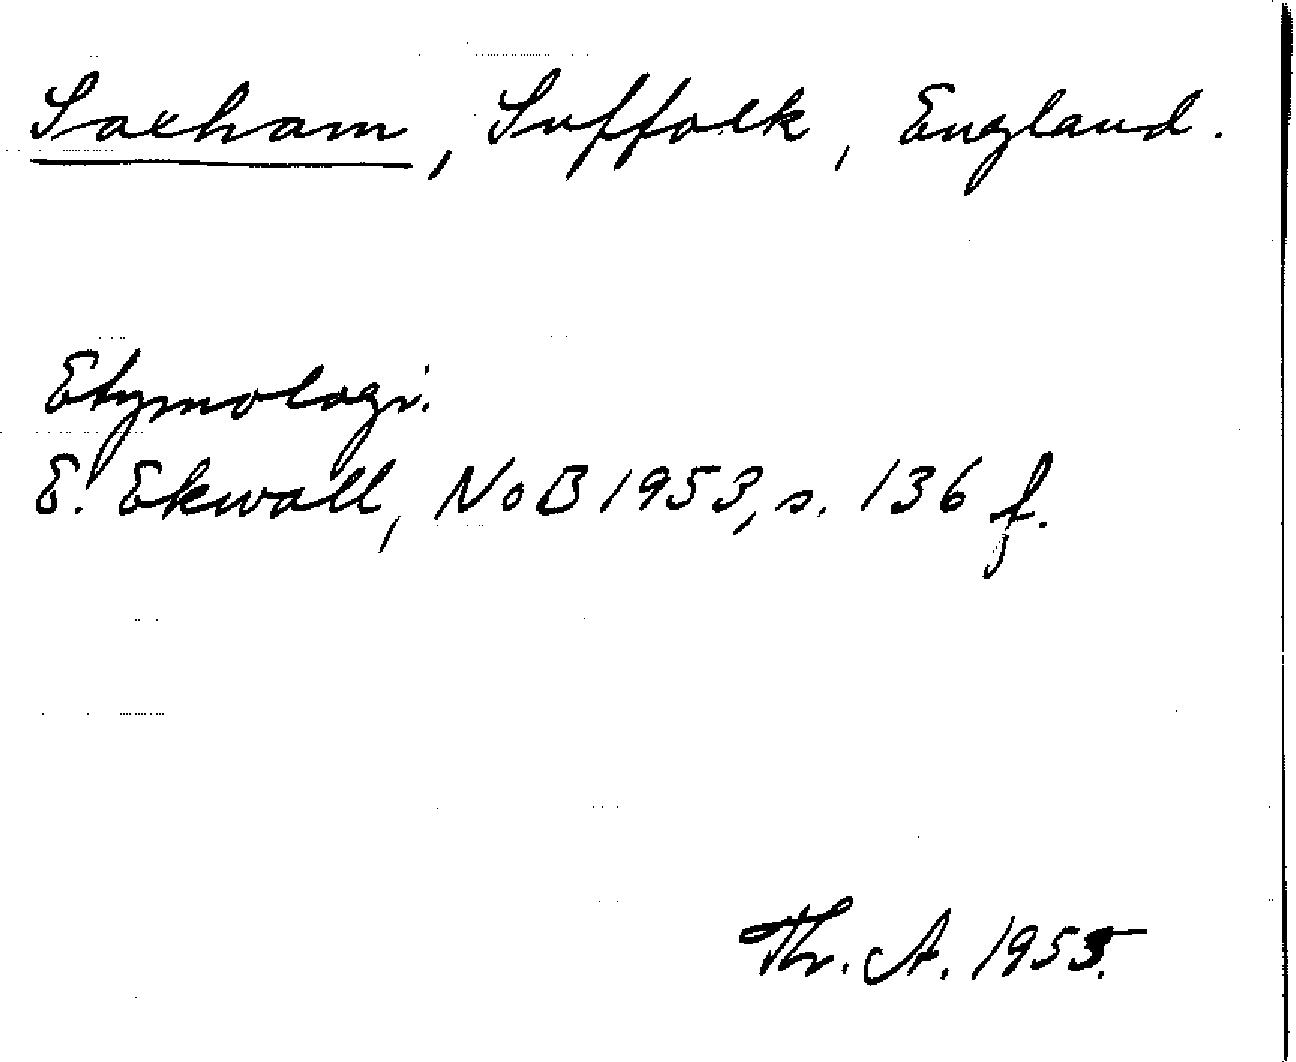 Saxham, Suffolk, England.
Etymologi.
E. Ekwall, NoB 1953, s. 136 f.
Th. A. 1955.